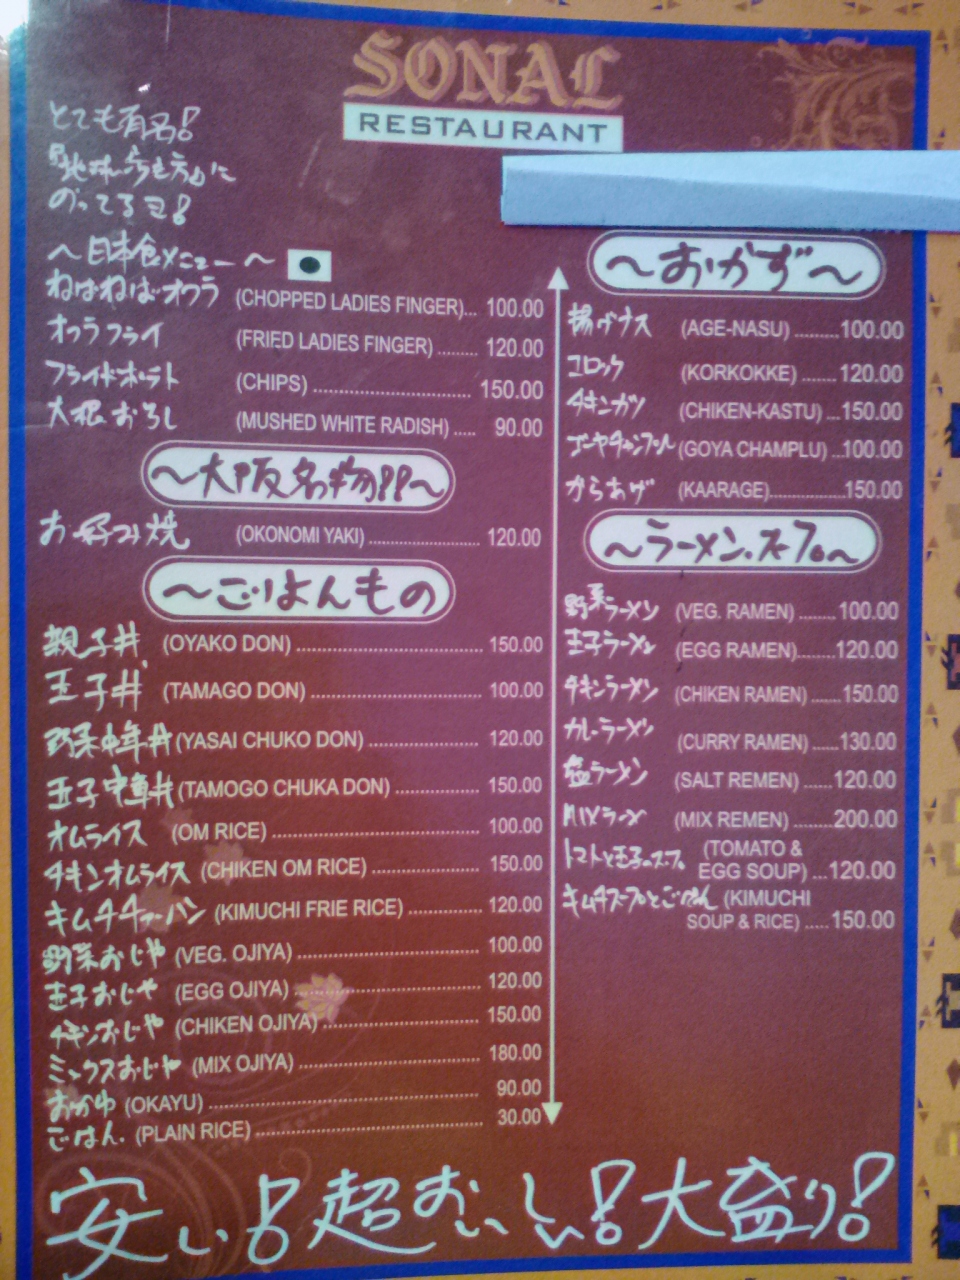 SONAL
RESTAURANT
とても有名!
『地球の歩き方』に
のってるヨ!
～日本食メニュー～
ねばねばオクラ (CHOPPED LADIES FINGER)... 100.00
オクラフライ (FRIED LADIES FINGER) ........ 120.00
フライドポテト (CHIPS) ................................ 150.00
大根おろし (MUSHED WHITE RADISH) ..... 90.00
～大阪名物!!～
お好み焼 (OKONOMI YAKI) ...................... 120.00
～ごはんもの
親子丼 (OYAKO DON) ..................................... 150.00
玉子丼 (TAMAGO DON) .................................. 100.00
野菜中華丼 (YASAI CHUKO DON) ...................... 120.00
玉子中華丼 (TAMOGO CHUKA DON) .................. 150.00
オムライス (OM RICE) ......................................... 100.00
チキンオムライス (CHIKEN OM RICE) ....................... 150.00
キムチチャーハン (KIMUCHI FRIE RICE) ............... 120.00
野菜おじや (VEG. OJIYA) ..................................... 100.00
玉子おじや (EGG OJIYA) ..................................... 120.00
チキンおじや (CHIKEN OJIYA) ............................... 150.00
ミックスおじや (MIX OJIYA) .................................... 180.00
おかゆ (OKAYU) ..................................................... 90.00
ごはん. (PLAIN RICE) ............................................. 30.00
～おかず～
揚げナス (AGE-NASU) .........100.00
コロッケ (KORKOKKE) .......120.00
チキンカツ (CHIKEN-KASTU) ...150.00
ゴーヤチャンプル (GOYA CHAMPLU) ...100.00
からあげ (KAARAGE).....................150.00
～ラーメン.スープ～
野菜ラーメン (VEG. RAMEN) ..........100.00
玉子ラーメン (EGG RAMEN).........120.00
チキンラーメン (CHIKEN RAMEN) .....150.00
カレーラーメン (CURRY RAMEN) ......130.00
塩ラーメン (SALT REMEN) ........120.00
MIXラーメン (MIX REMEN) .........200.00
トマトと玉子のスープ (TOMATO &
EGG SOUP) ...120.00
キムチスープとごはん (KIMUCHI
SOUP & RICE) .....150.00
安い!超おいしい!大盛り!